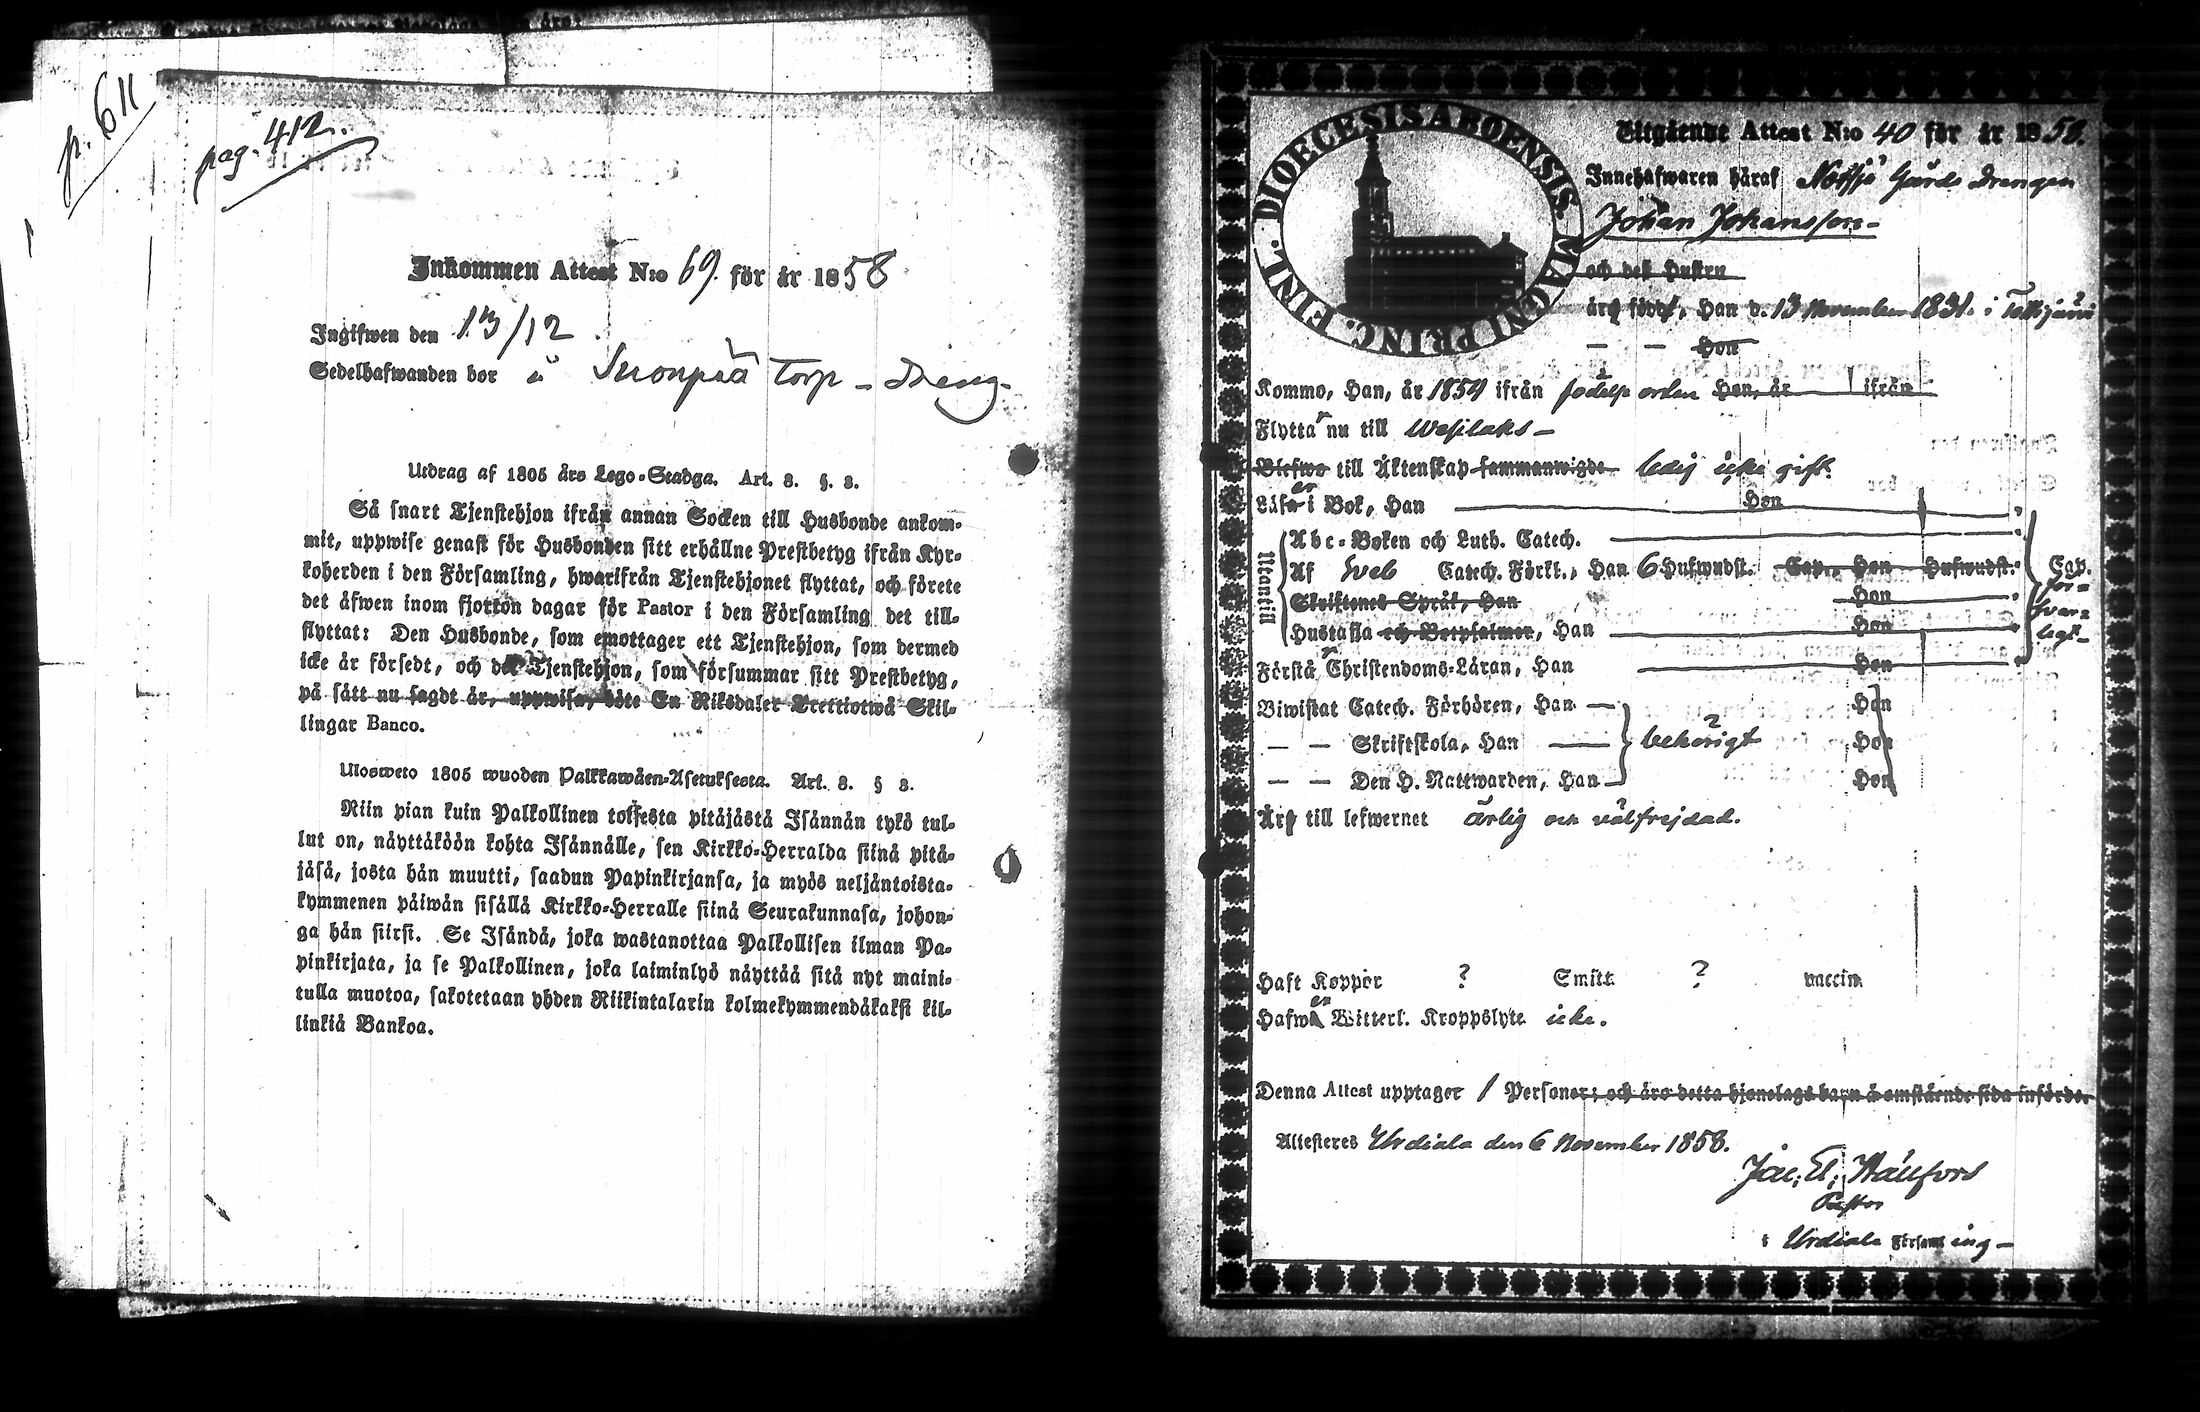 p. 611
pag. 412.
Inkommen Attest N:o 69. för år 1858
Ingifwen den 13/12
Sedelhafwanden bor å Suonpää torp - dreng -
Utdrag af 1805 års Lego-Stadga. Art. 8. §. 8.
Så snart Tjenstehjon ifrån annan Socken till Husbonde ankom-
mit, uppwise genast för Husbonden sitt erhållne Prestbetyg ifrån Kyr-
koherden i den Församling, hwarifrån Tjenstehjonet flyttat, och förete
det äfwen inom fjorton dagar för Pastor i den Församling det till-
flyttat: Den Husbonde, som emottager ett Tjenstehjon, som dermed
icke är försedt, och det Tjenstehjon, som försummar sitt Prestbetyg,
på sätt nu sagdt är, uppwisa, böte En Riksdaler Trettiotwå Skil-
lingar Banco.
Ulosweto 1805 wuoden Palkkawäen-Asetuksesta. Art. 8. § 8.
Niin pian kuin Palkollinen toisesta pitäjästä Isännän tykö tul-
lut on, näyttäköön kohta Isännälle, sen Kirkko-Herralda siinä pitä-
jäsä, josta hän muutti, saadun Papinkirjansa, ja myös neljäntoista-
kymmenen päiwän sisällä Kirkko-Herralle siinä Seurakunnasa, johon-
ga hän siirsi. Se Isändä, joka wastanottaa Palkollisen ilman Pa-
pinkirjata, ja se Palkollinen, joka laiminlyö näyttää sitä nyt maini-
tulla muotoa, sakotetaan yhden Riikintalarin kolmekymmendäkaksi kil-
linkiä Bankoa.
DIOECESIS ABOENSIS. MAGNI PRINC. FINL.
Utgående Attest N:o 40 för år 1858.
Innehafwaren häraf Gårds drengen
Johan Johansson -
och deß Hustru
äro födde, Han d. 13 November 1831. i
— — Hon
Kommo, Han, år 1854 ifrån födelse orten Hon, år ifrån
Flyttar nu till Wesilaks -
Blefwo till Äktenskap sammanwigde ledig icke gift.
Läser i Bok, Han Hon
Utantill
Abc-Boken och Luth. Catech.
Af Sveb Catech. Förkl., Han 6 Hufwudst. Cap. Hon Hufwudst. Cap.
för-
svar-
ligt -
Skriftenes Språk, Han Hon
Hustafla och Botpsalmer, Han Hon
Förstår Christendoms-Läran, Han Hon
Biwistat Catech. Förhören, Han — Hon
— — Skriftskola, Han — behörigt Hon
— — Den H. Nattwarden, Han — Hon
Äro till lefwernet ärlig och välfrejdad.
Haft Koppor ? Smitt. ? vaccin.
Hafwer Witterl. Kroppslyte icke.
Denna Attest upptager 1 Personer; och äro detta hjonelags barn å omstående sida införde.
Attesteres Urdiala den 6 November 1858.
Jac. El. Wallfors
Pastor
i Urdiala Församling -